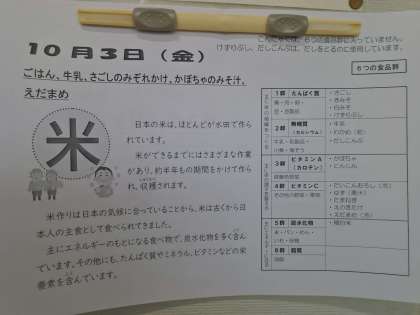 こんにゃくは、６つの食品群に入っていません。
けずりぶし、だしこんぶは、だしをとるのに使用しています。
１０月３日（金）
ごはん、牛乳、さごしのみぞれかけ、かぼちゃのみそ汁、
えだまめ
米
日本の米は、ほとんどが水田で作ら
れています。
米ができるまでにはさまざまな作業
があり、約半年もの期間をかけて作ら
れ、収穫されます。
米作りは日本の気候に合っていることから、米は古くから日
本人の主食として食べられてきました。
主にエネルギーのもとになる食べ物で、炭水化物を多く含ん
でいます。その他にも、たんぱく質やミネラル、ビタミンなどの栄
養素を含んでいます。
６つの食品群
１群 たんぱく質
・さごし
・赤みそ
・白みそ
・けずりぶし
２群 無機質
（カルシウム）
・牛乳
・わかめ（乾）
・だしこんぶ
３群 ビタミンＡ
（カロテン）
・かぼちゃ
・にんじん
４群 ビタミンＣ
・だいこんおろし（冷）
・ゆず（果汁）
・たまねぎ
・えのきたけ
・えだまめ（冷）
５群 炭水化物
・精白米
６群 脂質